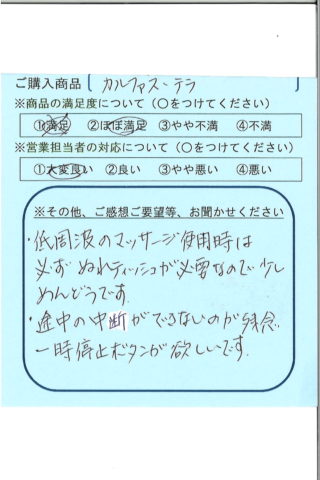 ご購入商品 [ カルファス・テラ ]
※商品の満足度について（○をつけてください）
①満足 ②ほぼ満足 ③やや不満 ④不満
※営業担当者の対応について（○をつけてください）
①大変良い ②良い ③やや悪い ④悪い
※その他、ご感想ご要望等、お聞かせください
・低周波のマッサージ使用時は
必ずぬれティッシュが必要なので少し
めんどうです。
・途中の中断ができないのが残念。
一時停止ボタンが欲しいです。